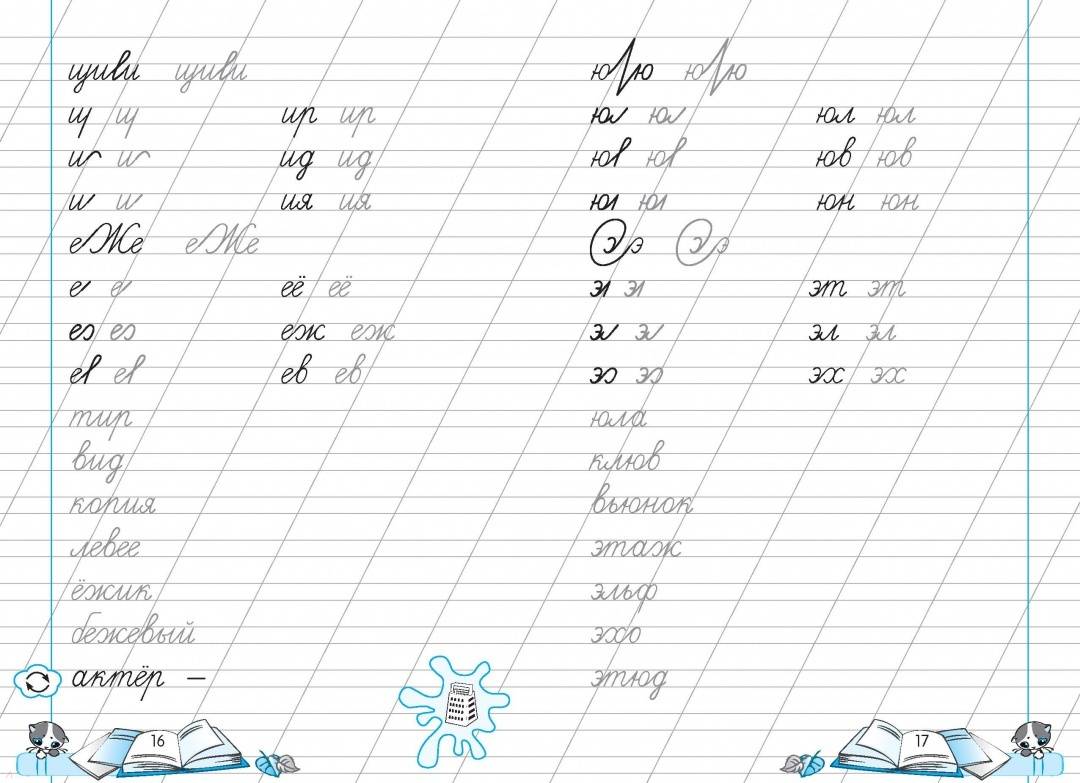 щиви щиви
щ щ ир ир
и и ид ид
и и ия ия
еЖе еЖе
е е её её
ез ез еж еж
ев ев ев ев
тир
вид
копия
левее
ёжик
бежевый
актёр –
16
ю ю ю ю
юл юл юл юл
юв юв юв юв
юн юн
э э
эт эт
эл эл эл эл
эх эх
юла
клюв
вьюнок
этаж
эльф
эхо
этюд
17